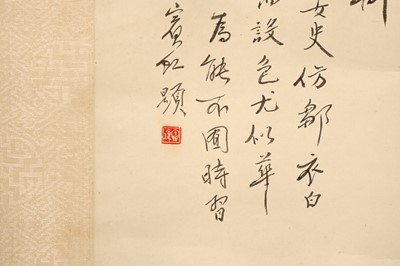 女史仿鄒衣白
設色尤似華
為能不囿時習
賓虹題